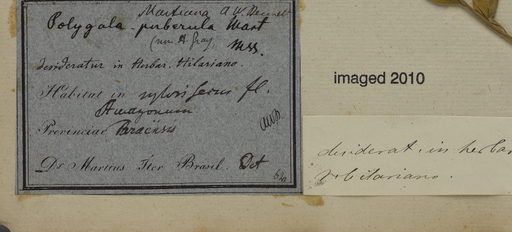 Martiana A. W. Bennett
Polygala puberula Mart
(non A Gray) Mss.
desideratur in Herbar. Hilariano.
Habitat in sylvis secus fl.
Amazonum
Provinciae Paraënsis
Dr Martius Iter Brasil. Oct
imaged 2010
desiderat. in herbar